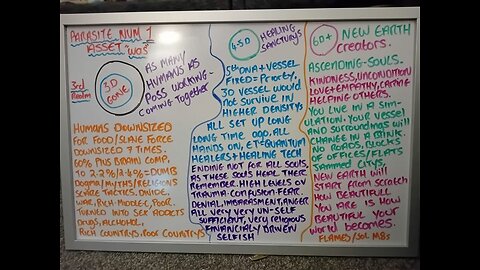 PARASITE NUM 1
ASSET "WAS"
3rd Realm
3D
GONE
AS MANY
HUMANS AS
POSS WORKING-
COMING TOGETHER
HUMANS DOWNSIZED
FOR FOOD/SLAVE FORCE
DOWNSIZED 7 TIMES.
60% PLUS BRAIN COMP,
TO 2.2%/2.4% = DUMB
DOGMA/MYTHS/RELIGIONS
SCARE TACTICS, DIVIDE,
WAR, RICH-MIDDLE-C, POOR.
TURNED INTO SEX ADDICTS
DRUGS, ALCOHOL,
RICH COUNTRYS, POOR COUNTRYS
4-5D
HEALING
SANCTURYS
5th DNA + VESSEL
FIXED = PRIORITY.
3D VESSEL WOULD
NOT SURVIVE IN
HIGHER DENSITYS
ALL SET UP LONG
LONG TIME AGO, ALL
HANDS ON, ET = QUANTUM
HEALERS + HEALING TECH
ENDING NOT FOR ALL SOULS,
AS THESE SOULS HEAL THERE
REMEMBER. HIGH LEVELS OV
TRAUMA-CONFUSION-FEAR
DENIAL, IMBARASMENT, ANGER
ALL VERY VERY UN-SELF
SUFFICIENT, VERY RELIGIOUS
FINANCIALLY DRIVEN
SELFISH
6D+
NEW EARTH
CREATORS.
ASCENDING-SOULS.
KINDNESS, UNCONDITION
LOVE + EMPATHY, CARING
HELPING OTHERS.
YOU LIVE IN A SIM-
ULATION. YOUR VESSEL
AND SURROUNDINGS WILL
CHANGE IN A BLINK.
NO ROADS, BLOCKS
OF OFFICES/FLATS
JAMMED CITYS.
NEW EARTH WILL
START FROM SCRATCH
HOW BEAUTIFUL
YOU ARE IS HOW
BEAUTIFUL YOUR
WORLD BECOMES.
FLAMES/SOL M8s